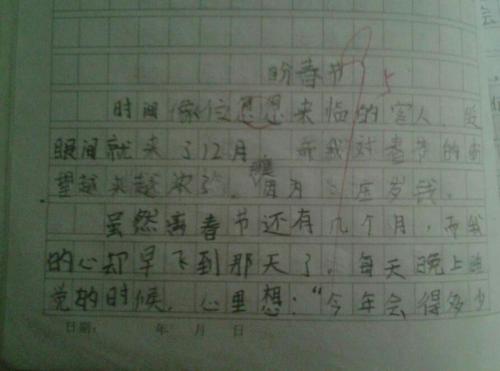 盼春节
5
时间像位匆匆来临的客人,
眼间就来了12月,而我对春节的
望越来越浓了,因为 压岁钱。
虽然离春节还有几个月,而我
的心却早飞到那天了。每天晚上睡
觉的时候,心里想:“今年会得多少
日期: 年 月 日